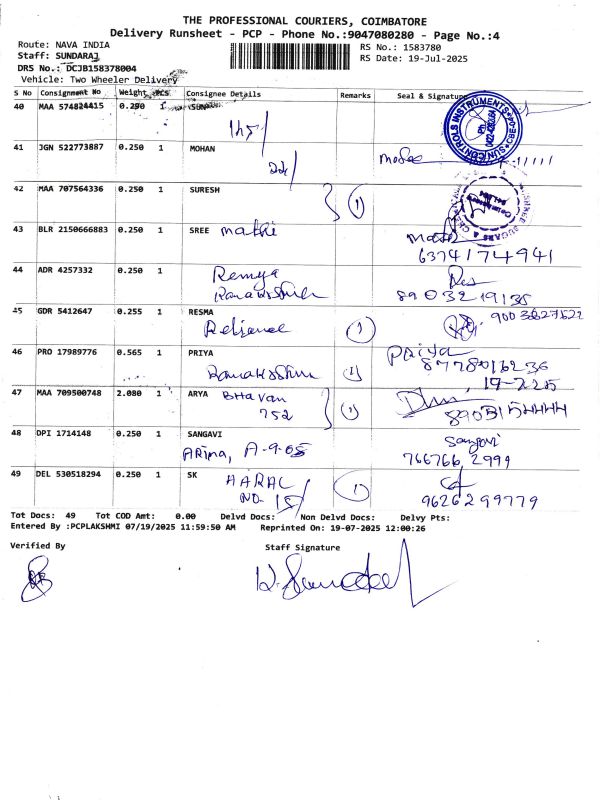 THE PROFESSIONAL COURIERS, COIMBATORE
Delivery Runsheet - PCP - Phone No.:9047080280 - Page No.:4
Route: NAVA INDIA
RS No.: 1583780
Staff: SUNDARAJ
RS Date: 19-Jul-2025
DRS No.: DCJB158378004
Vehicle: Two Wheeler Delivery
S No Consignment No Weight PCS Consignee Details Remarks Seal & Signature
40 MAA 574824415 0.290 1 SUN
41 JGN 522773887 0.250 1 MOHAN
42 MAA 707564336 0.250 1 SURESH
1
43 BLR 2150666883 0.250 1 SREE mathi
6374174941
44 ADR 4257332 0.250 1 Remya
Ramakrishnan
8903219135
45 GDR 5412647 0.255 1 RESMA
Reliance 1
46 PRO 17989776 0.565 1 PRIYA Priya
8778016236
1
47 MAA 709500748 2.080 1 ARYA Bhavan
752 1
48 DPI 1714148 0.250 1 SANGAVI Sangavi
A-9-05
766766 2999
49 DEL 530518294 0.250 1 SK AARAC
NO. 15 1
9626299779
Tot Docs: 49 Tot COD Amt: 0.00 Delvd Docs: Non Delvd Docs: Delvy Pts:
Entered By :PCPLAKSHMI 07/19/2025 11:59:50 AM Reprinted On: 19-07-2025 12:00:26
Verified By Staff Signature